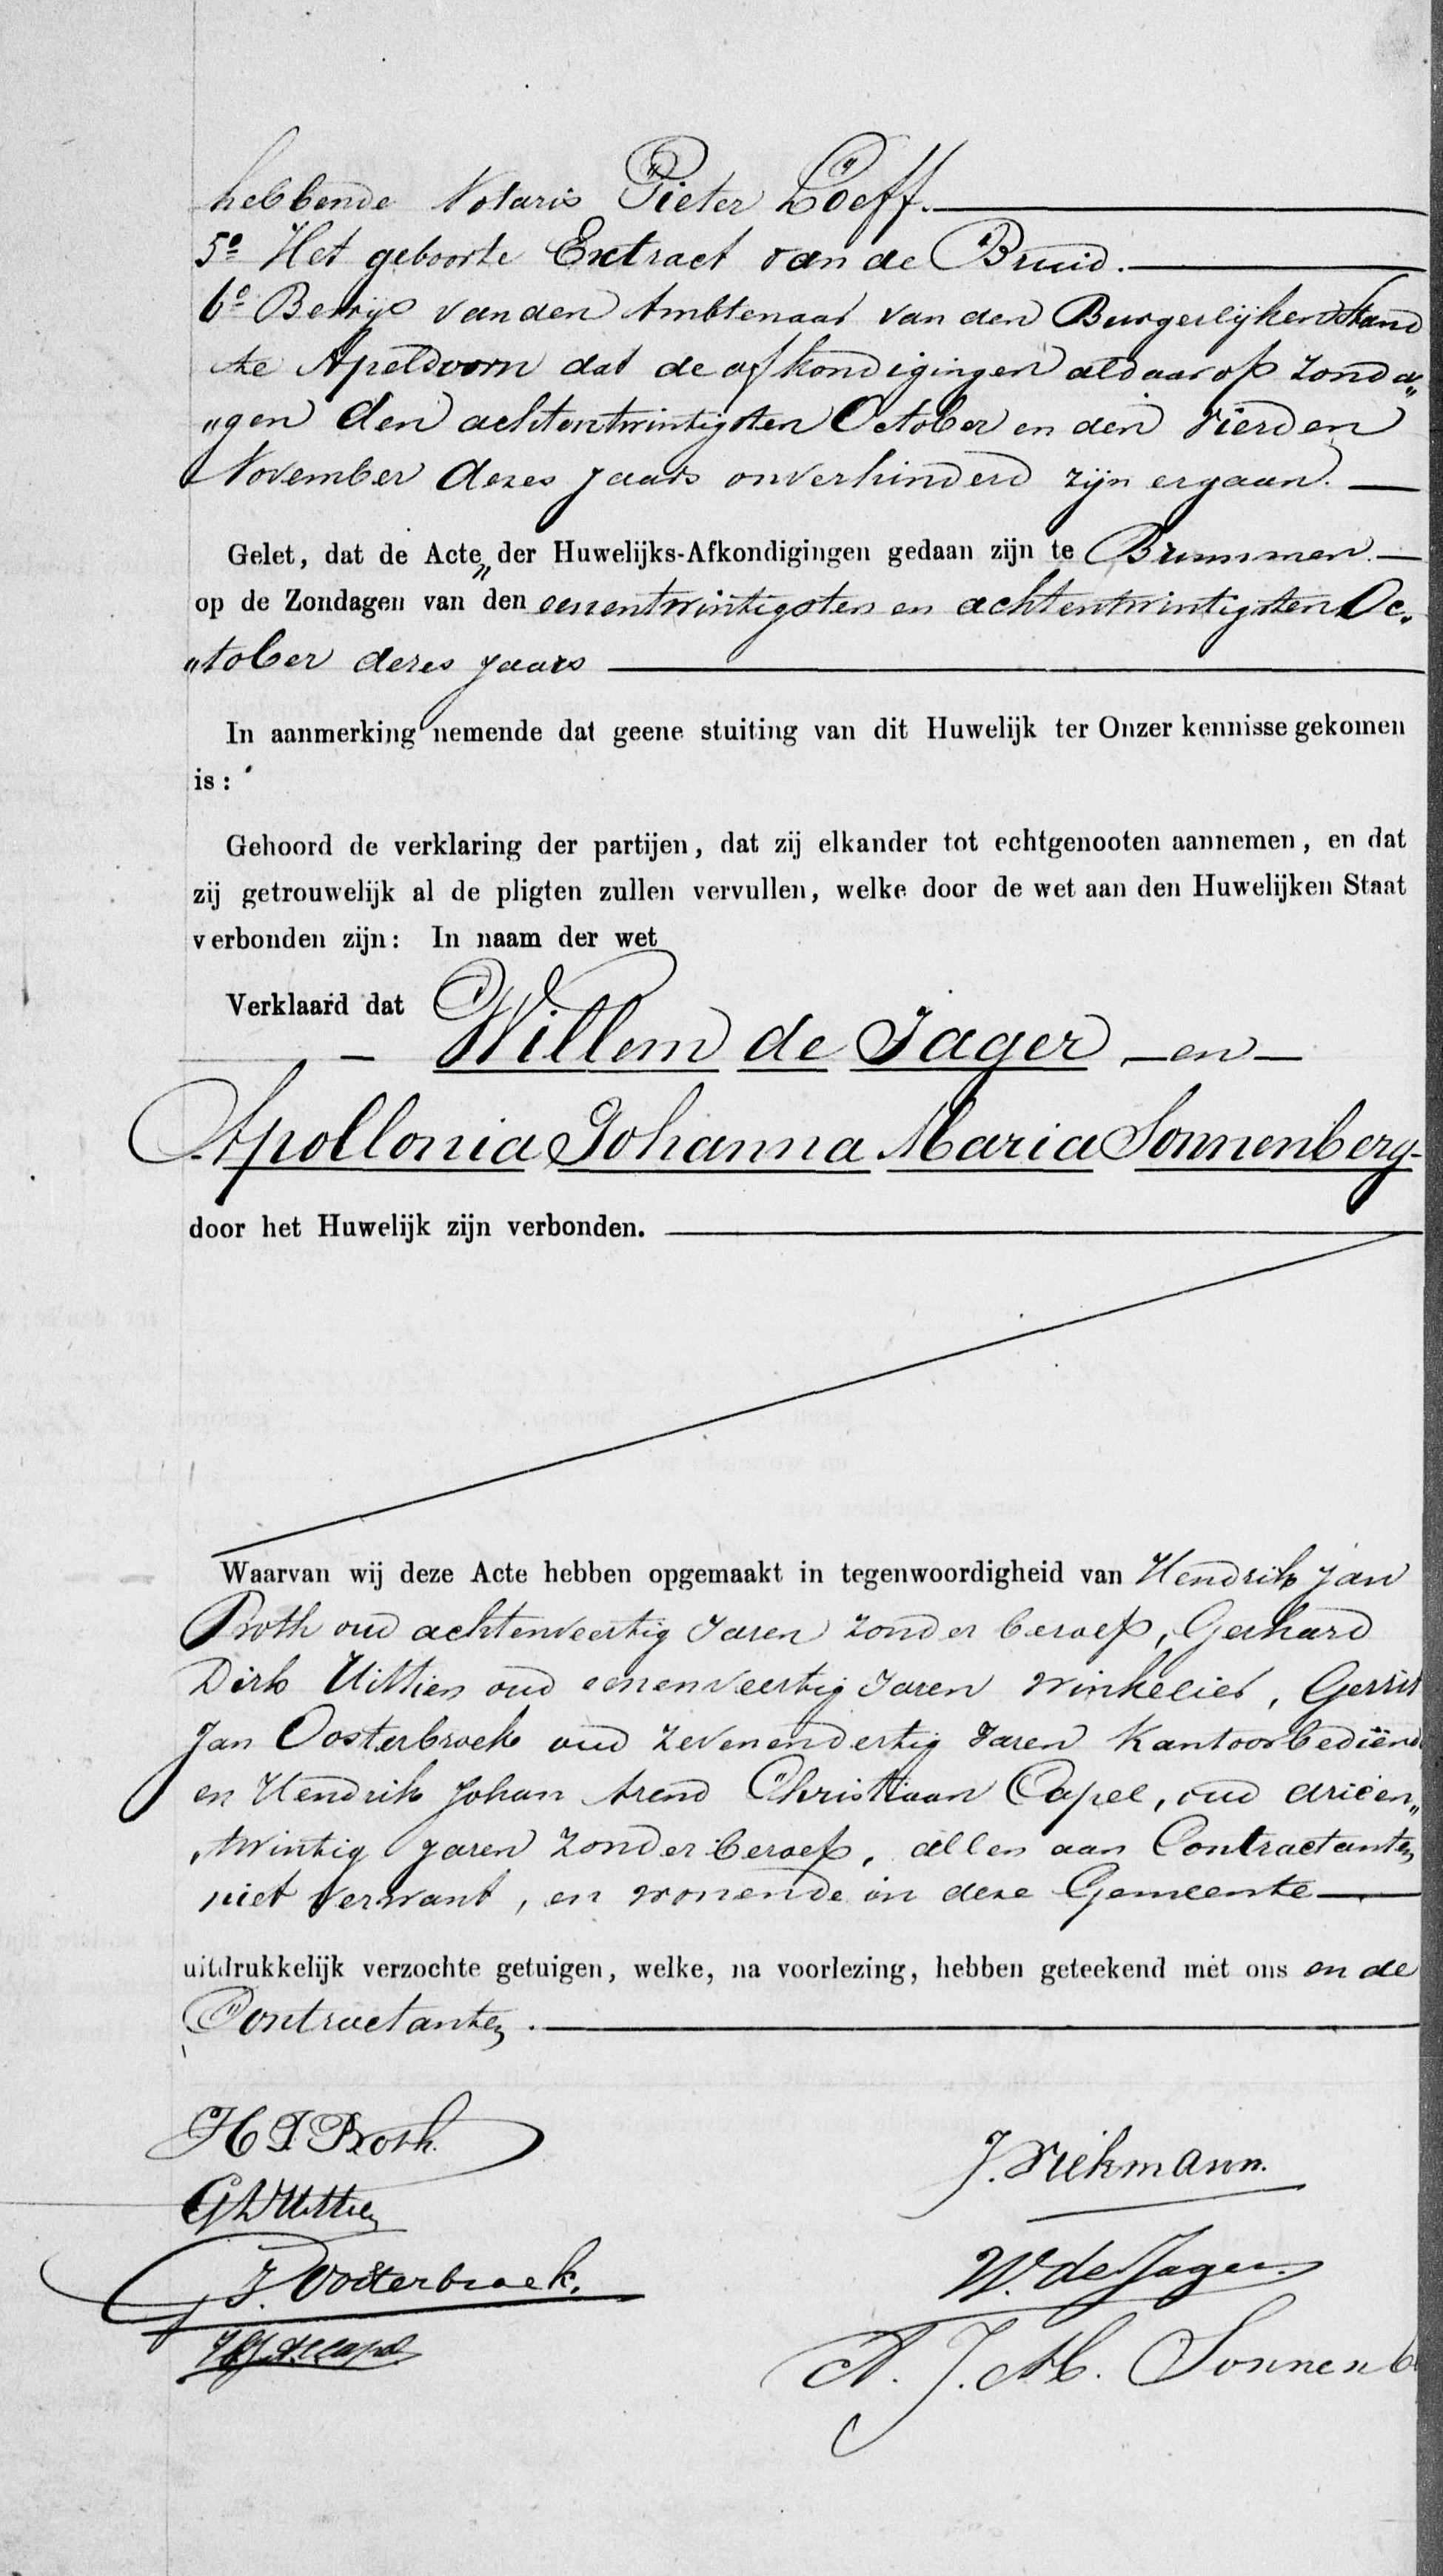 hebbende Notaris Pieter Loeff.
5º Het geboorte Extract van de Bruid.
6º Bewijs van den Ambtenaar van den Burgerlijken Stand
te Apeldoorn dat de afkondigingen aldaar op Zonda„
„gen den achtentwintigsten October en den vierden
November dezes jaars onverhinderd zijn ergaan.
Gelet, dat de Acten der Huwelijks-Afkondigingen gedaan zijn te Brummen
op de Zondagen van den eenentwintigsten en achtentwintigsten Oc„
„tober dezes jaars
In aanmerking nemende dat geene stuiting van dit Huwelijk ter Onzer kennisse gekomen
is:
Gehoord de verklaring der partijen, dat zij elkander tot echtgenooten aannemen, en dat
zij getrouwelijk al de pligten zullen vervullen, welke door de wet aan den Huwelijken Staat
verbonden zijn: In naam der wet
Verklaard dat
Willem de Jager – en –
Apollonia Johanna Maria Sonnenberg
door het Huwelijk zijn verbonden.
Waarvan wij deze Acte hebben opgemaakt in tegenwoordigheid van Hendrik Jan
Proth oud achtenveertig Jaren zonder beroep, Gerhard
Dirk Uittien oud eenenveertig Jaren winkelier, Gerrit
Jan Oosterbroek oud zevenendertig Jaren Kantoorbediend
en Hendrik Johan Arend Christiaan Capel, oud drieën„
„twintig jaren zonder beroep, allen aan Contractanten
niet verwant, en wonende in deze Gemeente
uitdrukkelijk verzochte getuigen, welke, na voorlezing, hebben geteekend met ons en de
Contractanten.
H J Proth.
J. Diekmann.
G D Uittien
W. de Jager
G J. Oosterbroek.
A. J. M. Sonnenb